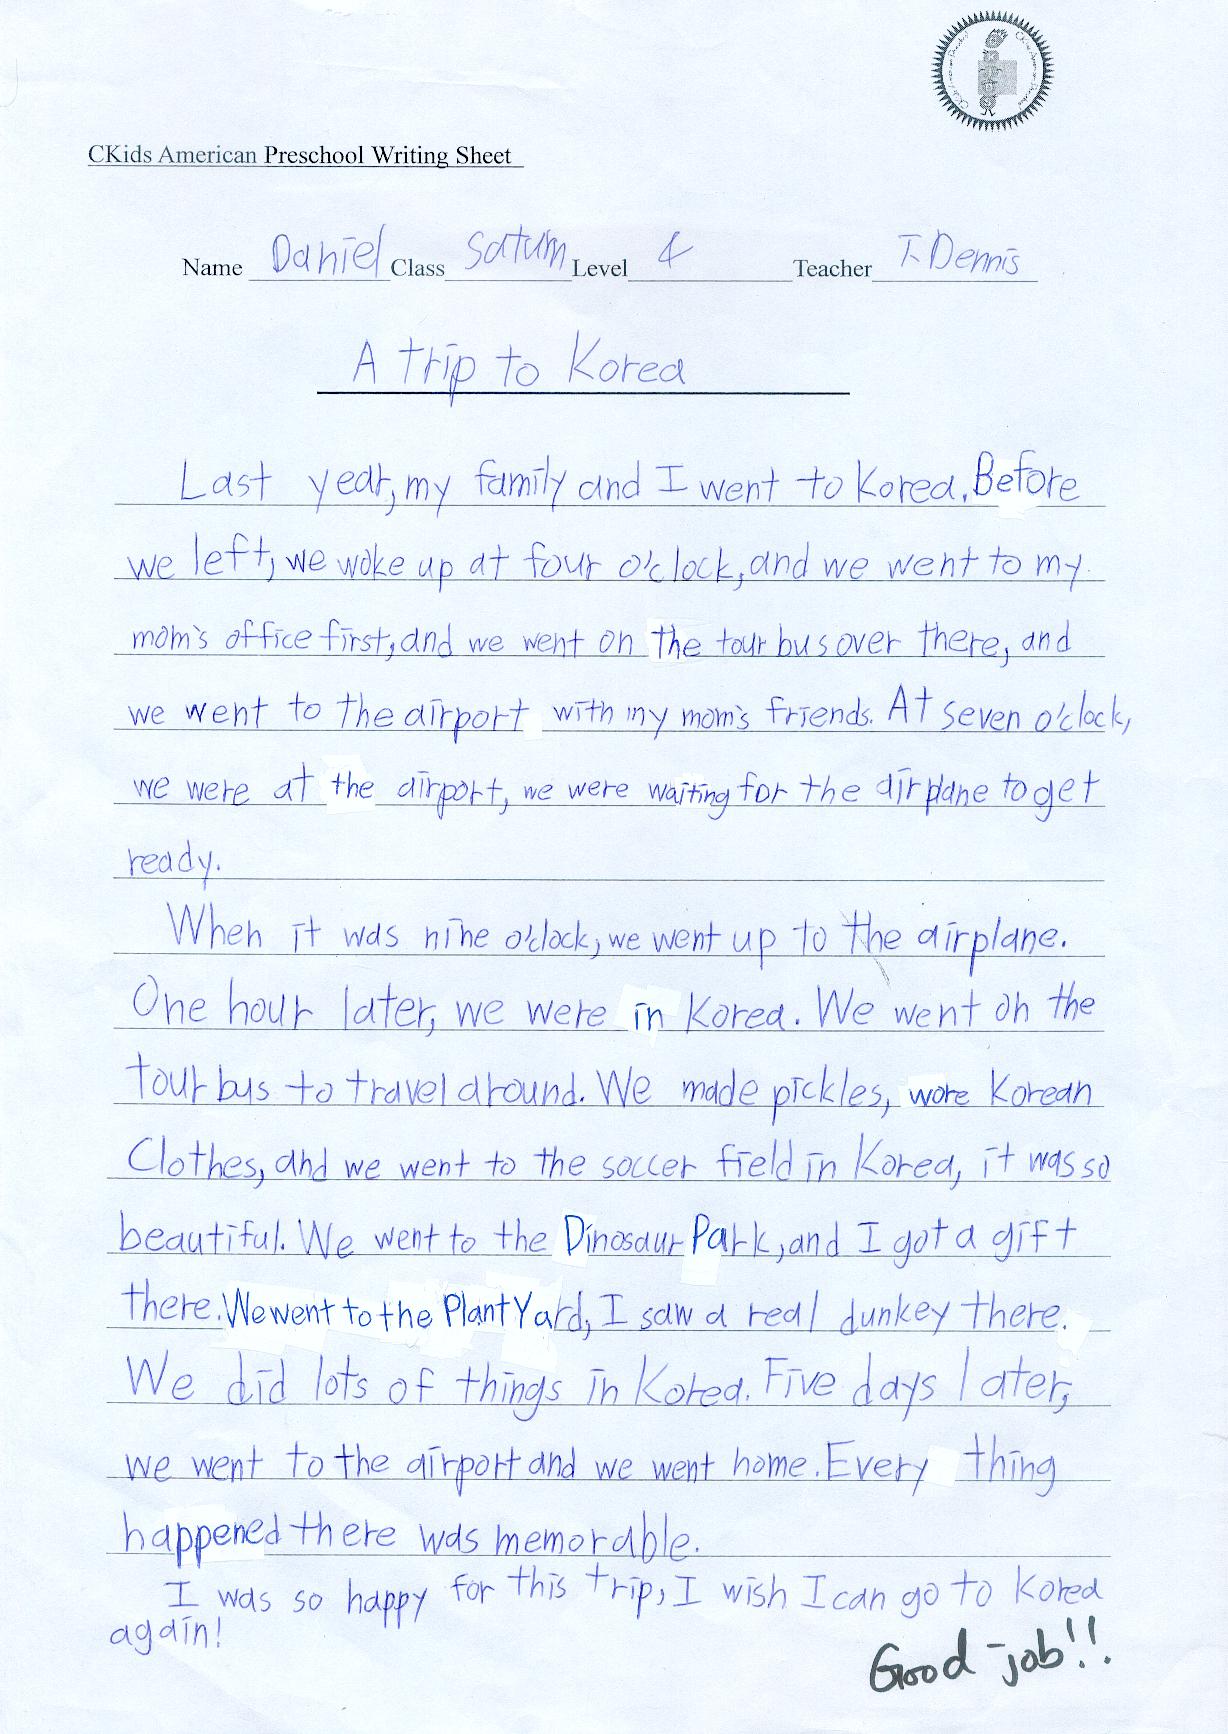 CKids American Preschool Writing Sheet
Name Daniel Class Saturn Level 4 Teacher T. Dennis
A trip to Korea
Last year, my family and I went to Korea. Before
we left, we woke up at four o'clock, and we went to my
mom's office first, and we went on the tour bus over there, and
we went to the airport with my mom's friends. At seven o'clock,
we were at the airport, we were waiting for the airplane to get
ready.
When it was nine o'clock, we went up to the airplane.
One hour later, we were in Korea. We went on the
tour bus to travel around. We made pickles, wore Korean
Clothes, and we went to the soccer field in Korea, it was so
beautiful. We went to the Dinosaur Park, and I got a gift
there. We went to the Plant Yard, I saw a real dunkey there.
We did lots of things in Korea. Five days later,
we went to the airport and we went home. Every thing
happened there was memorable.
I was so happy for this trip, I wish I can go to Korea
again!
Good job!!